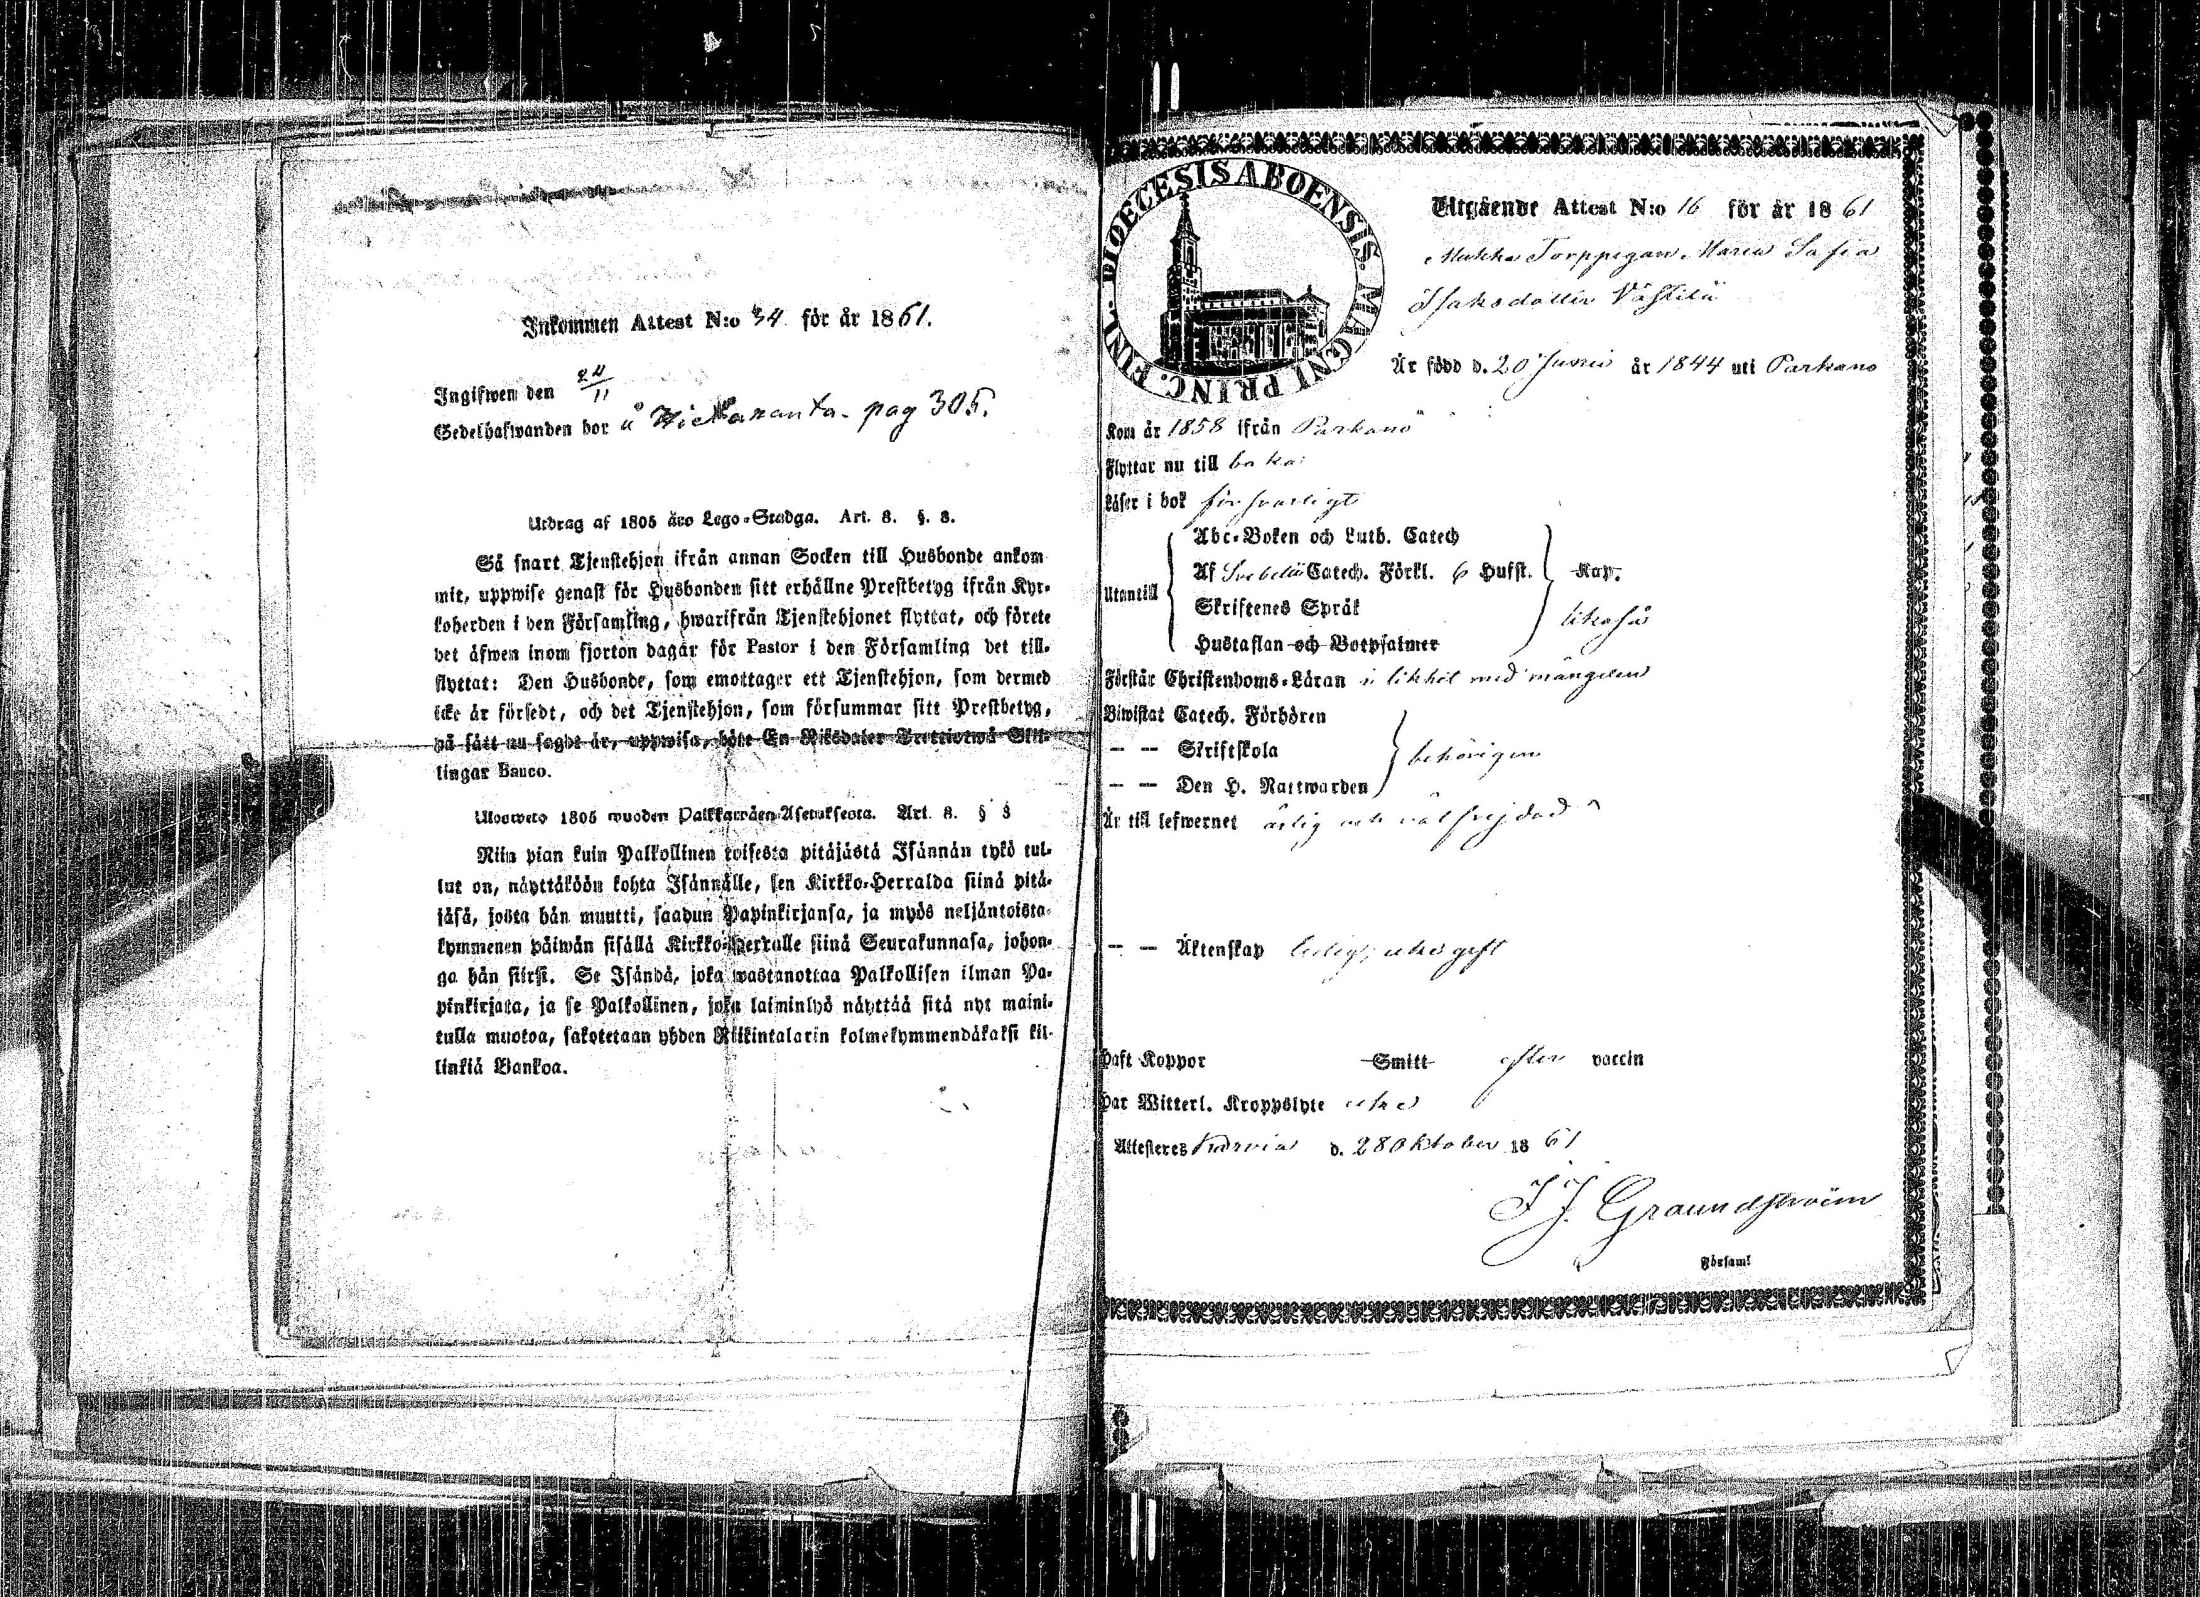 Inkommen Attest N:o 34 för år 1861.
Ingifwen den 24/11
Sedelhafwanden bor å pag 305.
Utdrag af 1805 års Lego-Stadga. Art. 8. §. 3.
Så snart Tjenstehjon ifrån annan Socken till Husbonde ankom-
mit, uppwise genast för Husbonden sitt erhållne Prestbetyg ifrån Kyr-
koherden i den Församling, hwarifrån Tjenstehjonet flyttat, och förete
det äfwen inom fjorton dagar för Pastor i den Församling det till-
flyttat: Den Husbonde, som emottager ett Tjenstehjon, som dermed
icke är försedt, och det Tjenstehjon, som försummar sitt Prestbetyg,
på sätt nu sagdt är, uppwisa, böte En Riksdaler Trettiotwå Skil-
lingar Banco.
Uloswéto 1805 wuoden Palkkawäen-Asetuksesta. Art. 8. § 3
Niin pian kuin Palkollinen toisesta pitäjästä Isännän tykö tul-
lut on, näyttäköön kohta Isännälle, sen Kirkko-Herralda siinä pitä-
jäsä, josta hän muutti, saadun Papinkirjansa, ja myös neljäntoista-
kymmenen päiwän sisällä Kirkko-Herralle siinä Seurakunnasa, johon-
ga hän siirsi. Se Isändä, joka wastanottaa Palkollisen ilman Pa-
pinkirjata, ja se Palkollinen, joka laiminlyö näyttää sitä nyt maini-
tulla muotoa, sakotetaan yhden Riikintalarin kolmekymmendäkaksi kil-
linkiä Bankoa.
DIOECESIS ABOENSIS. MAGNI PRINC. FINL.
Utgående Attest N:o 16 för år 1861
Torppigan Maria Sofia
Isaksdotter
Är född d. 20 Junii år 1844 uti Parkano
Kom år 1858 ifrån Parkano
Flyttar nu till baka
Läser i bok försvarligt
Utantill
Abc-Boken och Luth. Catech
Af Svebelii Catech. Förkl. 6 Hufst. Kap.
Skriftenes Språk
Hustaflan och Botpsalmer
likaså
Förstår Christendoms-Läran i likhet med mängden
Biwistat Catech. Förhören
— — Skriftskola
— — Den H. Nattwarden
behörigen
Är till lefwernet ärlig och välfrejdad
— — Äktenskap ledig, icke gift
Haft Koppor Smitt efter vaccin
Har Witterl. Kroppslyte icke
Attesteres d. 28 Oktober 1861
Församl